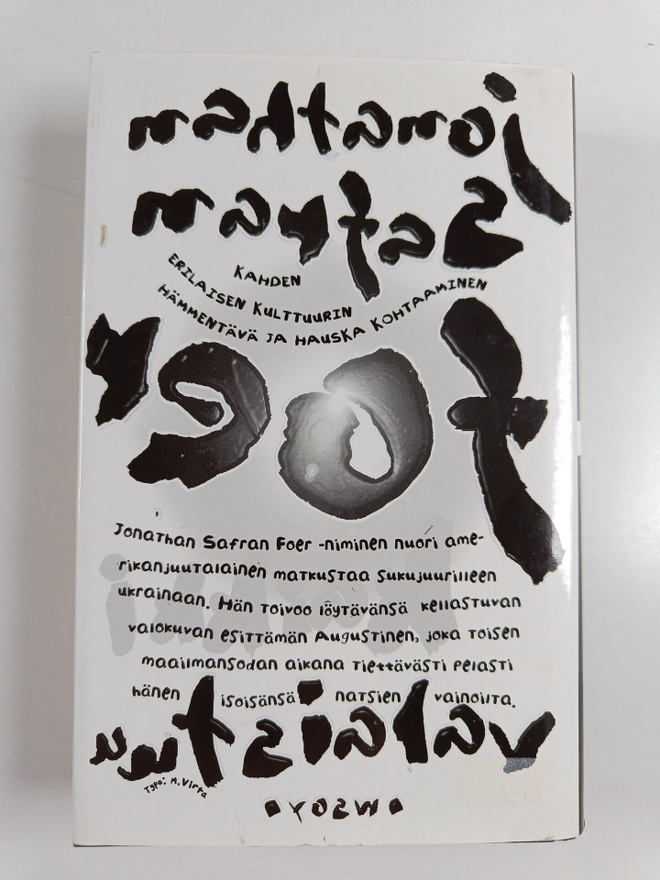 jonathan
safran
KAHDEN
ERILAISEN KULTTUURIN
HÄMMENTÄVÄ JA HAUSKA KOHTAAMINEN
foer
Jonathan Safran Foer -niminen nuori ame-
rikanjuutalainen matkustaa sukujuurilleen
ukrainaan. Hän toivoo löytävänsä kellastuvan
valokuvan esittämän Augustinen, joka toisen
maailmansodan aikana tiettävästi pelasti
hänen isoisänsä natsien vainoilta.
kaikki
valaistuu
Typo: M. Virta
WSOY